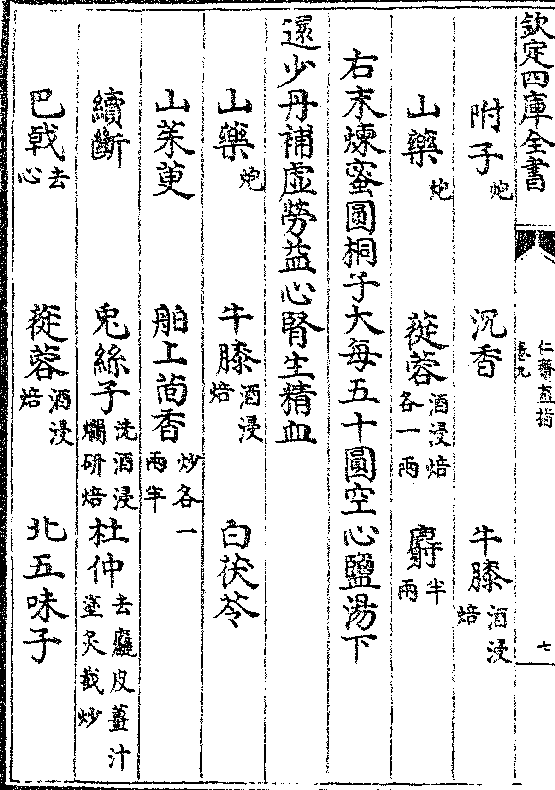 欽定四庫全書
仁齋直指
卷九
七
附子炮 沉香 牛膝酒浸焙
山藥炮 蓯蓉酒浸焙各一兩 麝半兩
右末煉蜜圓桐子大每五十圓空心鹽湯下
還少丹補虛勞益心腎生精血
山藥炮 牛膝酒浸焙 白茯苓
山茱萸 舶上茴香炒各一兩半
續斷 兎絲子洗酒浸爛研焙 杜仲去麤皮薑汁塗炙截炒
巴戟去心 蓯蓉酒浸焙 北五味子